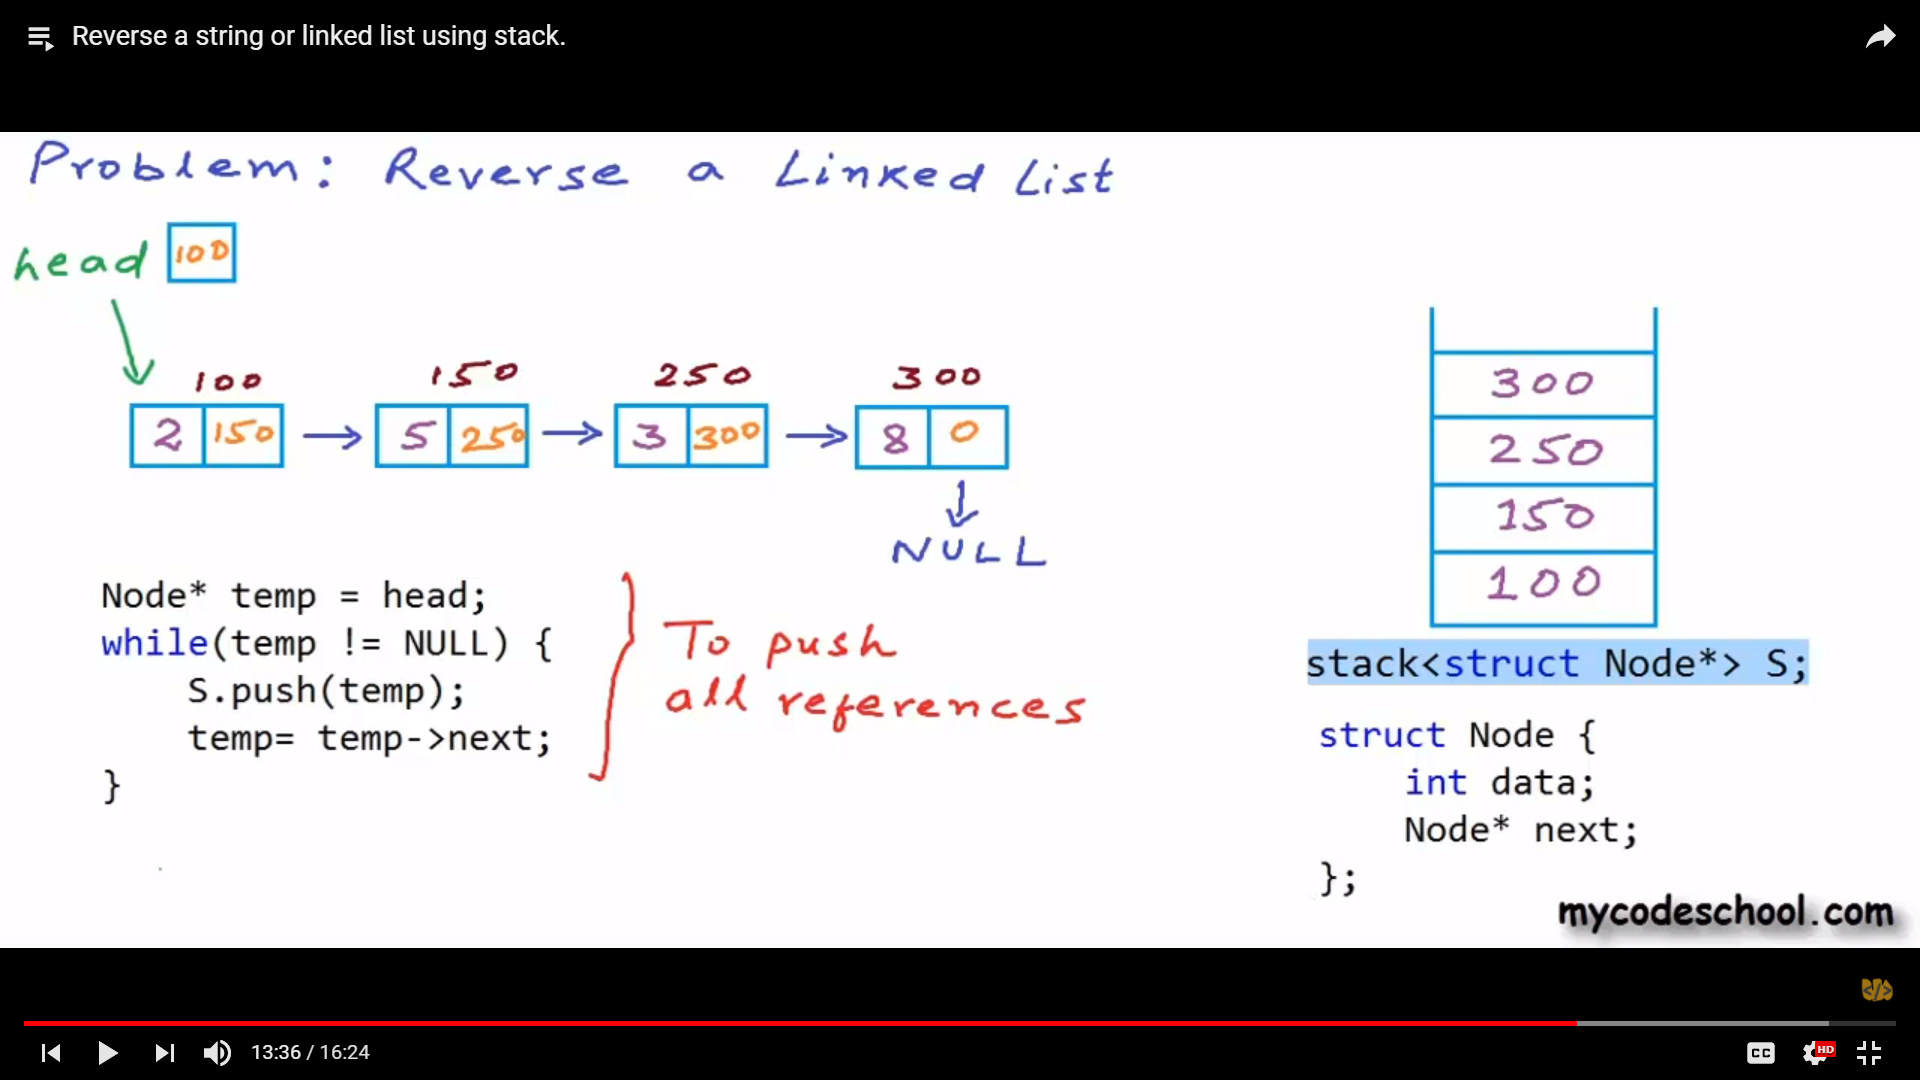 Reverse a string or linked list using stack.
Problem: Reverse a Linked List
head 100
100 150 250 300
2 150 5 250 3 300 8 0
NULL
300
250
150
100
Node* temp = head;
while(temp != NULL) {
S.push(temp);
temp= temp->next;
}
To push
all references
stack<struct Node*> S;
struct Node {
int data;
Node* next;
};
mycodeschool.com
</>
13:36 / 16:24
CC
HD